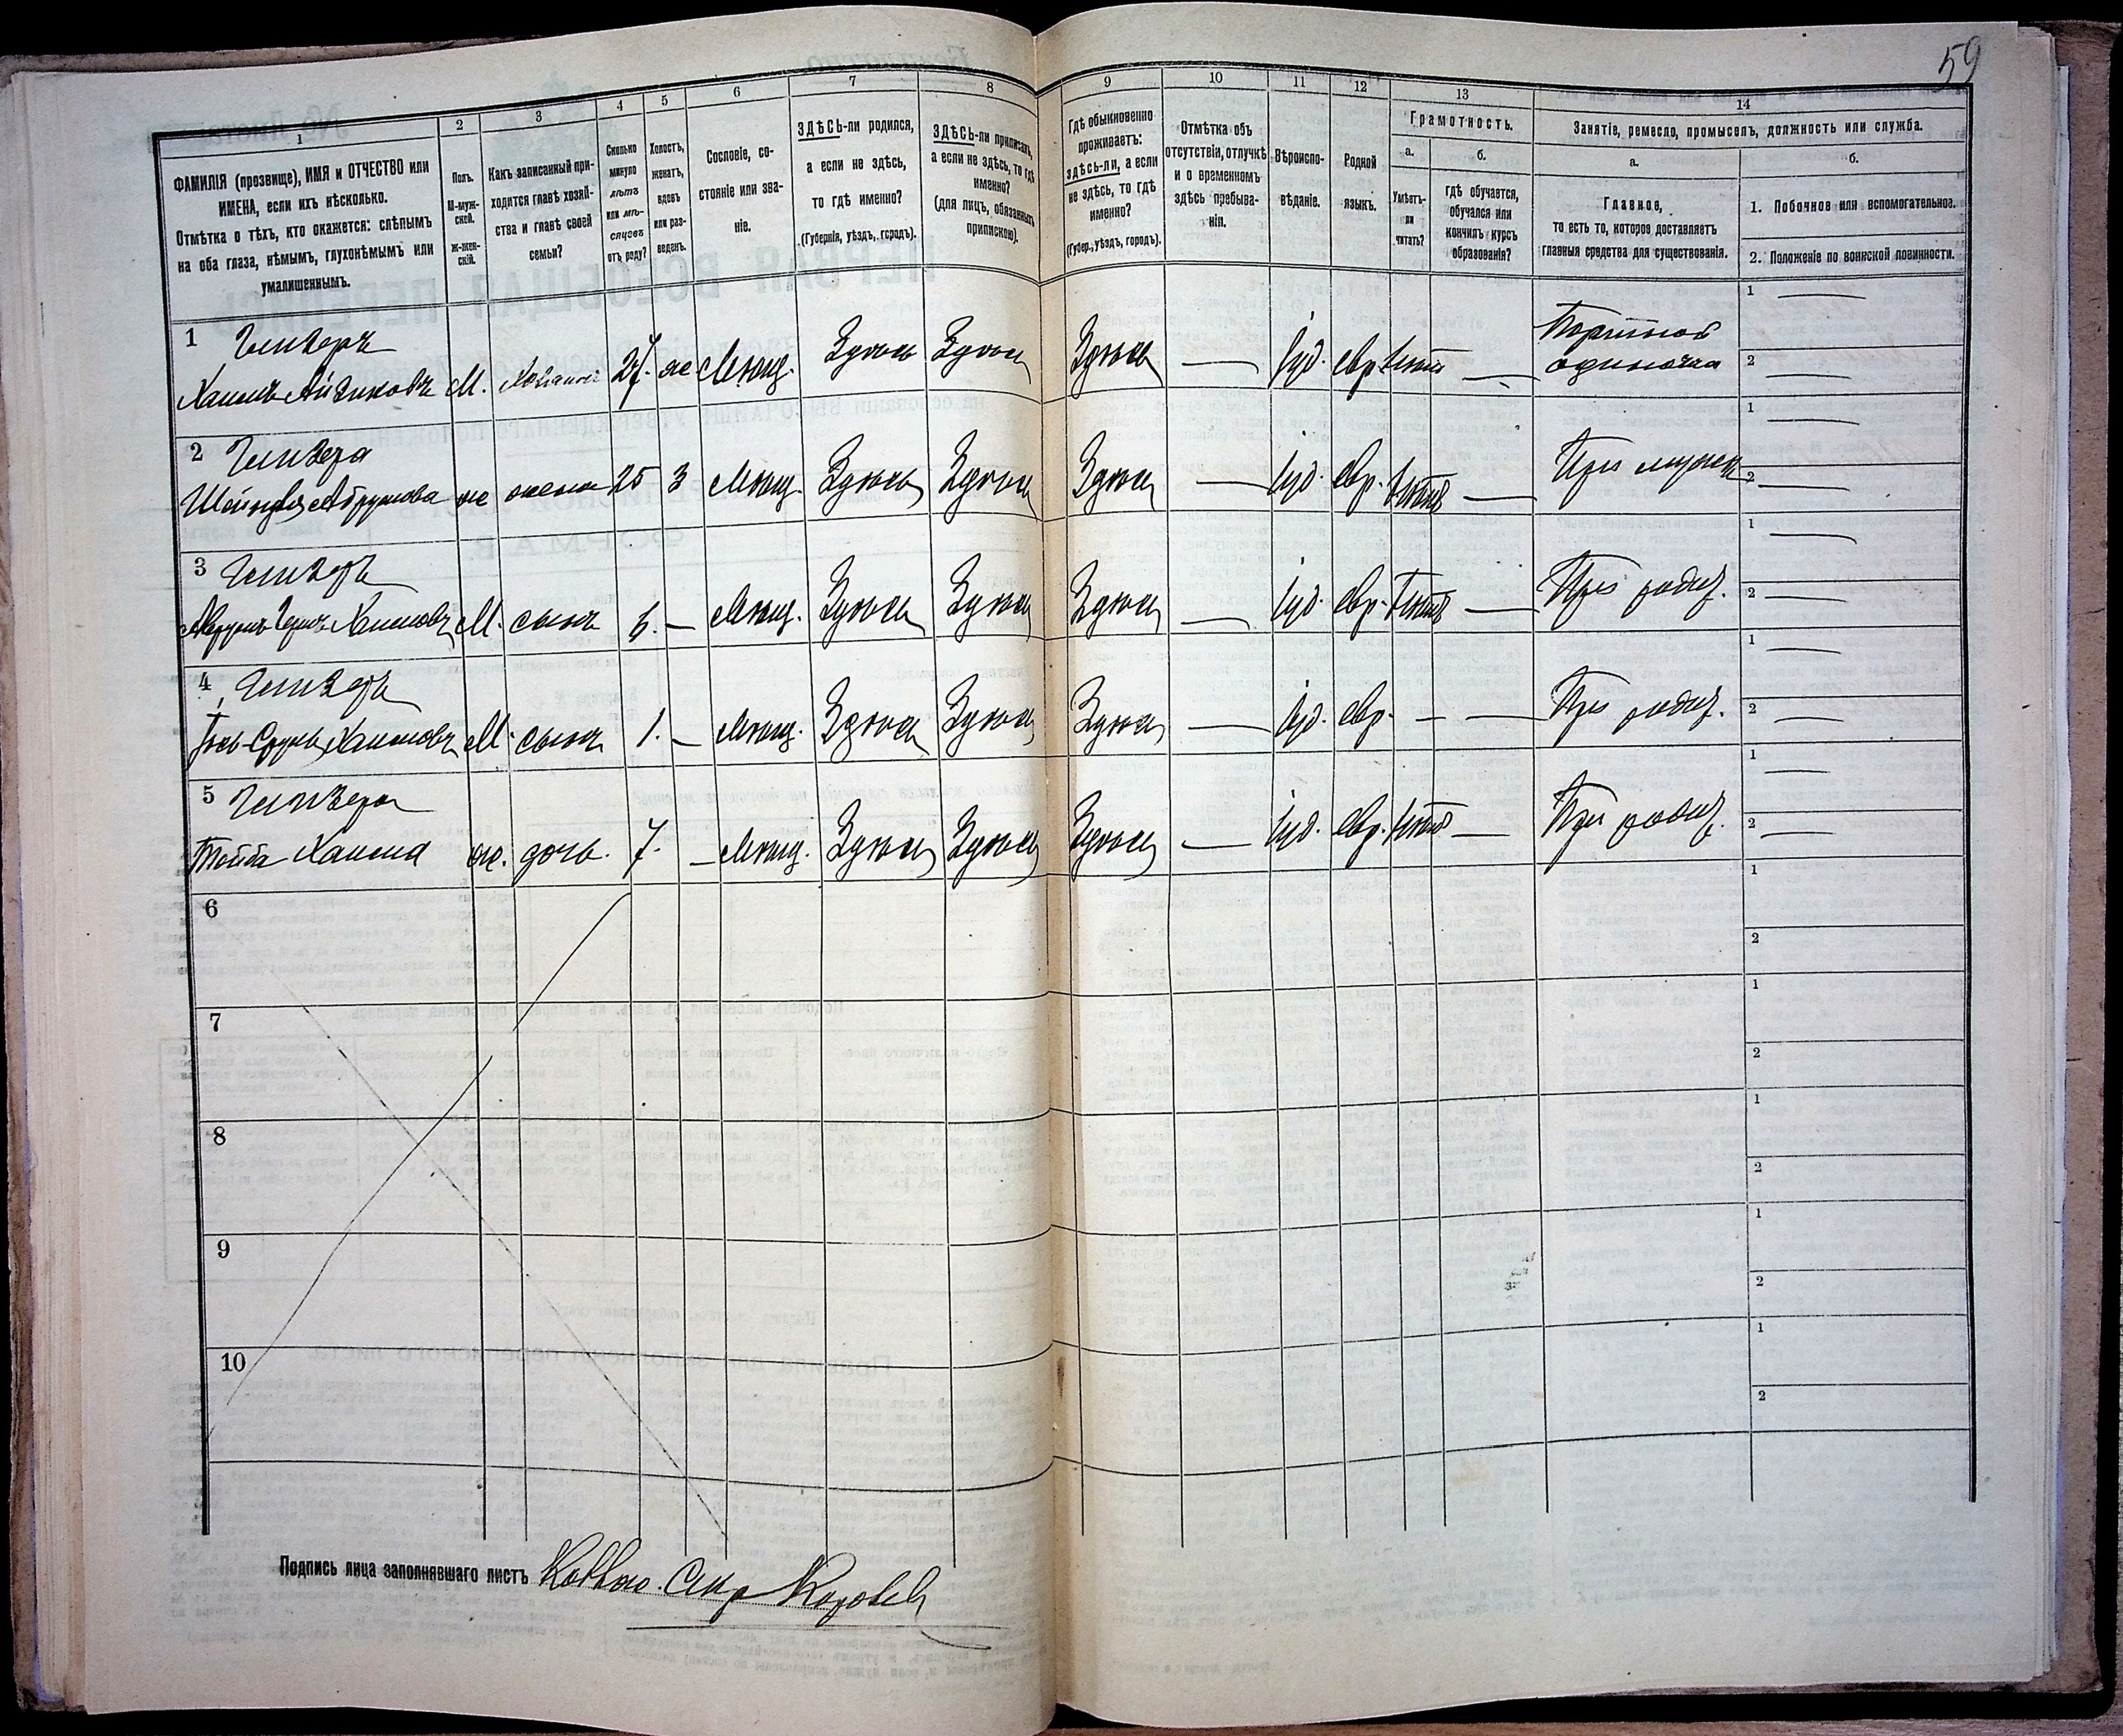 59
1
2
3
4
5
6
7
8
9
10
11
12
13
14
ФАМИЛІЯ (прозвище), ИМЯ и ОТЧЕСТВО или
ИМЕНА, если ихъ нѣсколько.
Отмѣтка о тѣхъ, кто окажется: слѣпымъ
на оба глаза, нѣмымъ, глухонѣмымъ или
умалишеннымъ.
Полъ.
М-муж-
ской.
Ж-жен-
скій.
Какъ записанный при-
ходится главѣ хозяй-
ства и главѣ своей
семьи?
Сколько
минуло
лѣтъ
или мѣ-
сяцевъ
отъ роду?
Холостъ,
женатъ,
вдовъ
или раз-
веденъ.
Сословіе, со-
стояніе или зва-
ніе.
ЗДѢСЬ-ли родился,
а если не здѣсь,
то гдѣ именно?
(Губернія, уѣздъ, городъ).
ЗДѢСЬ-ли приписанъ,
а если не здѣсь, то гдѣ
именно?
(для лицъ, обязанныхъ
припискою).
Гдѣ обыкновенно
проживаетъ:
здѣсь-ли, а если
не здѣсь, то гдѣ
именно?
(Губер., уѣздъ, городъ).
Отмѣтка объ
отсутствіи, отлучкѣ
и о временномъ
здѣсь пребыва-
ніи.
Вѣроиспо-
вѣданіе.
Родной
языкъ.
Грамотность.
а.
Умѣетъ-
ли
читать?
б.
гдѣ обучается,
обучался или
кончилъ курсъ
образованія?
Занятіе, ремесло, промыселъ, должность или служба.
а.
Главное,
то есть то, которое доставляетъ
главныя средства для существованія.
б.
1. Побочное или вспомогательное.
2. Положеніе по воинской повинности.
1
Хаимъ Айзиковъ М. 27. ж Мѣщ. Здѣсь Здѣсь Здѣсь — Іуд. Евр. нѣтъ — Портной
одиночка
1 —
2 —
2
ж жена 25 з Мѣщ. Здѣсь Здѣсь Здѣсь — Іуд. Евр. нѣтъ — При мужѣ
1 —
2 —
3
Хаимовъ М. сынъ — Мѣщ. Здѣсь Здѣсь Здѣсь — Іуд. Евр. нѣтъ — При родит.
1 —
2 —
4
Хаимовъ М. сынъ 1. — Мѣщ. Здѣсь Здѣсь Здѣсь — Іуд. Евр. — — При родит.
1 —
2 —
5
Тойба Хаимова ж. дочь. 7. — Мѣщ. Здѣсь Здѣсь Здѣсь — Іуд. Евр. нѣтъ — При родит.
1 —
2 —
6
1
2
7
1
2
8
1
2
9
1
2
10
1
2
Подпись лица заполнявшаго листъ